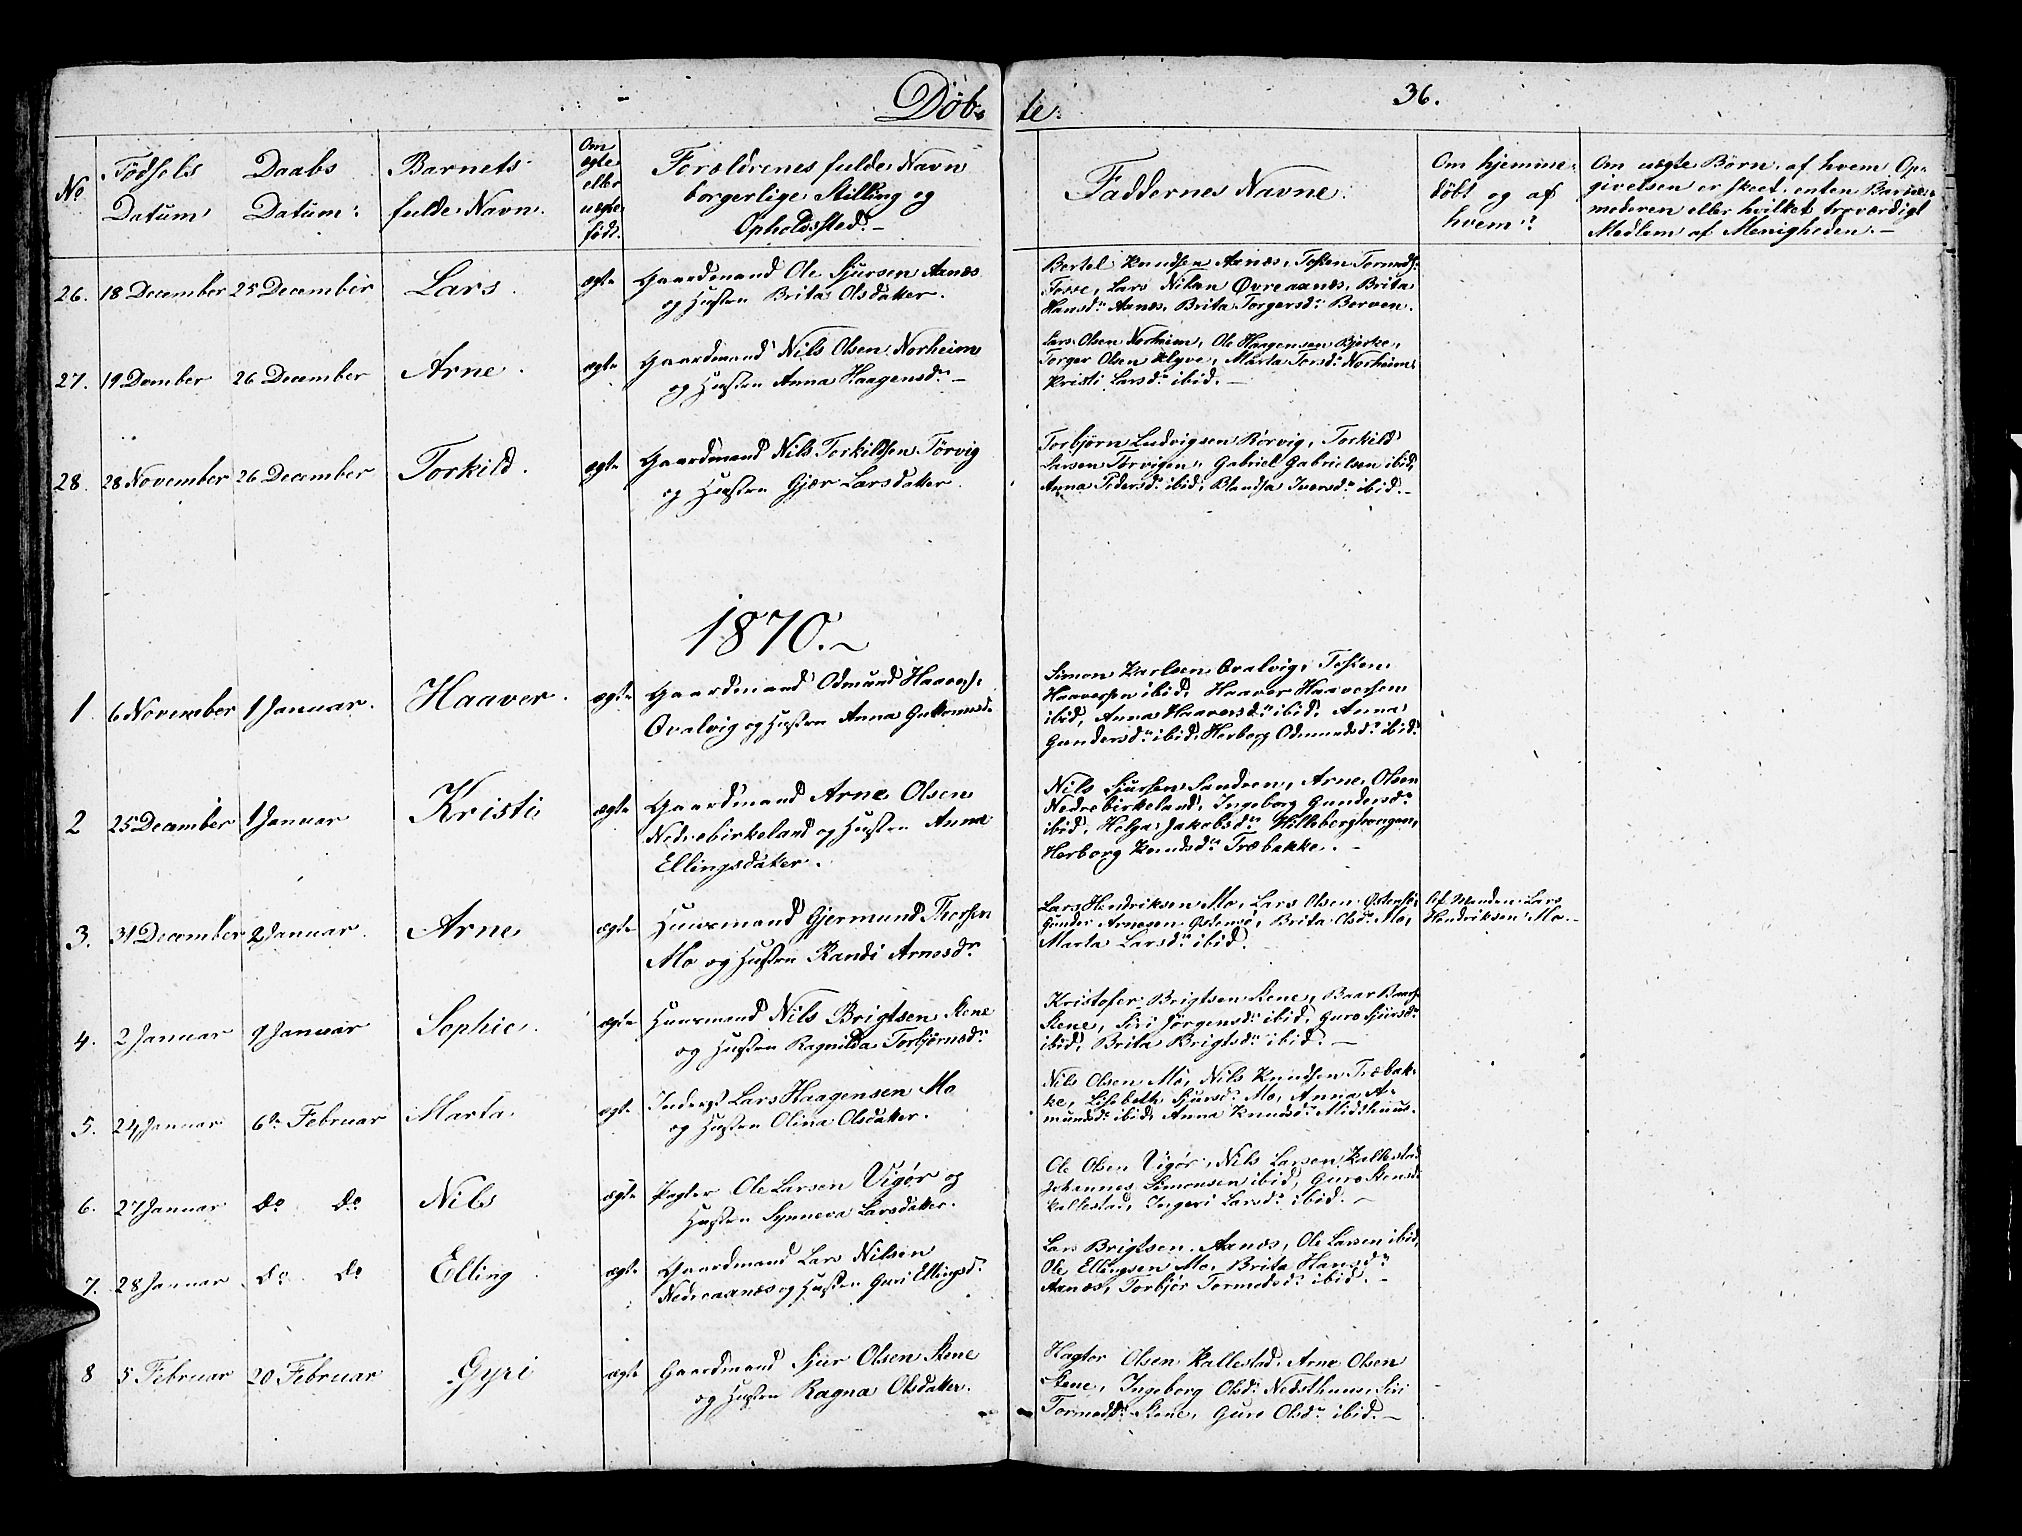 Døb-
te.
36.
No
Fødsels
Datum
Daabs
Datum:
Barnets
fulde Navn.
Om
ægte
eller
uægte
født.
Forældrenes fulde Navn
borgerlige Stilling og
Opholdssted.-
Faddernes Navne.
Om hjemme-
døbt og af
hvem?
Om uægte Børn, af hvem Op-
givelsen er skeet, enten Barne-
moderen eller hvilket troværdigt
Medlem af Menigheden.-
26. 18 December 25 December Lars. ægte Gaardmand Ole Sjursen Aanæs
og Hustru Brita Olsdatter.
Bertel Knudsen Aanæs, Tosten Tormods.
Fosse, Lars Nilsen Øvreaanæs, Brita
Hansdr Aanæs, Brita Torgersdr Berven.
27. 19 Dember 26 December Arne. ægte Gaardmand Nils Olsen Norheim
og Hustru Anna Haagensdr -
Lars Olsen Norheim, Ole Haagensen Bjerke,
Torger Olsen Klyve, Marta Torsdr Norheim,
Kristi Larsdr ibid.-
28. 28 November 26 December Torkild. ægte Gaardmand Nils Torkildsen Tørvig
og Hustru Gjær Larsdatter.
Torbjørn Ludvigsen Rørvig, Torkild
Larsen Tørvigen, Gabriel Gabrielsen ibid,
Anna Pedersdr ibid, Iversdr ibid.-
1870.-
1. 6 November 1 Januar. Haaver. ægte Gaardmand Odmund Haavers.
Qvalvig og Hustru Anna
Simon Karlsen Qvalvig, Tosten
Haaversen ibid, Haaver Haaversen
ibid, Anna Haaversdr ibid, Anna
Gundersdr ibid, Herborg Odmundsdr ibid.
2 25 December 1 Januar Kristi ægte Gaardmand Arne Olsen
Nedrebirkeland og Hustru Anna
Ellingsdatter.
Nils Sjursen Sandven, Arne Olsen
Nedrebirkeland, Ingeborg Gundersdr
ibid, Helga Jakobsdr
Herborg Knudsdr Træbakke.-
3. 31 December 2 Januar. Arne ægte Huusmand Gjermund Thorsen
Mo og Hustru Randi Arnesdr
Lars Hendriksen Mo, Lars Olsen Østensø,
Gunder Arnesen Østensø, Brita Olsdr Mo,
Marta Larsdr ibid.
Af Manden Lars
Hendriksen Mo.-
4. 2 Januar 9 Januar Sophie. ægte Huusmand Nils Brigtsen Stene
og Hustru Ragnilda Torbjørnsdr
Kristofer Brigtsen Stene, Baar Baards.
Stene, Siri Jørgensdr ibid, Guro Sjursdr
ibid, Brita Brigtsdr ibid.-
5. 24 Januar 6te Februar Marta. ægte Inderst Lars Haagensen Mo
og Hustru Olina Olsdatter.
Nils Olsen Mo, Nils Knudsen Træbak-
ke, Lisbeth Sjursdr Mo, Anna A-
mundsdr ibid, Anna Knudsdr Midthuus.
6. 27 Januar Do Do Nils ægte Pagter Ole Larsen Vigør og
Hustru Synneva Larsdatter.
Ole Olsen Vigør, Nils Larsen Kallestad
Johannes Simonsen ibid, Guro
Kallestad, Ingeri Larsdr ibid.-
7. 28 Januar Do Do Elling ægte Gaardmand Lars Nilsen
Nedreaanæs og Hustru Guri Ellingsdr
Lars Brigtsen Aanæs, Ole Larsen ibid,
Ole Ellingsen Mo, Brita Hansdr
Aanæs, Torbjør Tormodsdr ibid.-
8 5 Februar 20 Februar Gyri ægte Gaardmand Sjur Olsen Stene
og Hustru Ragna Olsdatter.
Hagtor Olsen Kallestad, Arne Olsen
Stene, Ingeborg Olsdr Nedsthuus, Siri
Tormodsdr Stene, Guro Olsdr ibid.-